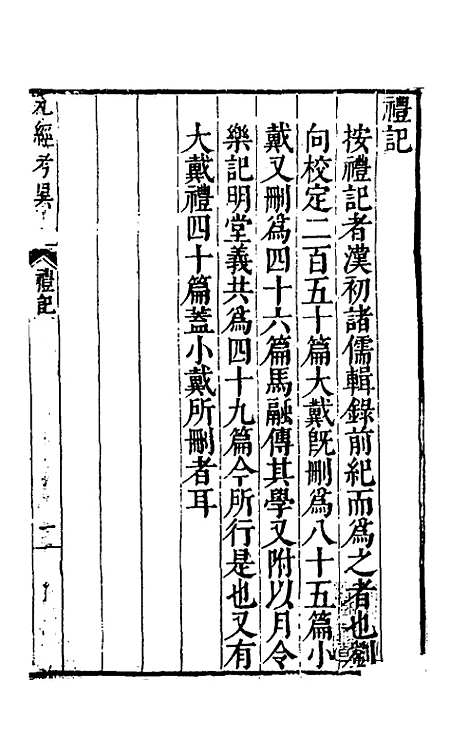 禮記
按禮記者漢初諸儒輯錄前紀而爲之者也劉
向校定二百五十篇大戴旣刪爲八十五篇小
戴又刪爲四十六篇馬融傳其學又附以月令
樂記明堂義共爲四十九篇今所行是也又有
大戴禮四十篇蓋小戴所刪者耳
九經考異
禮記